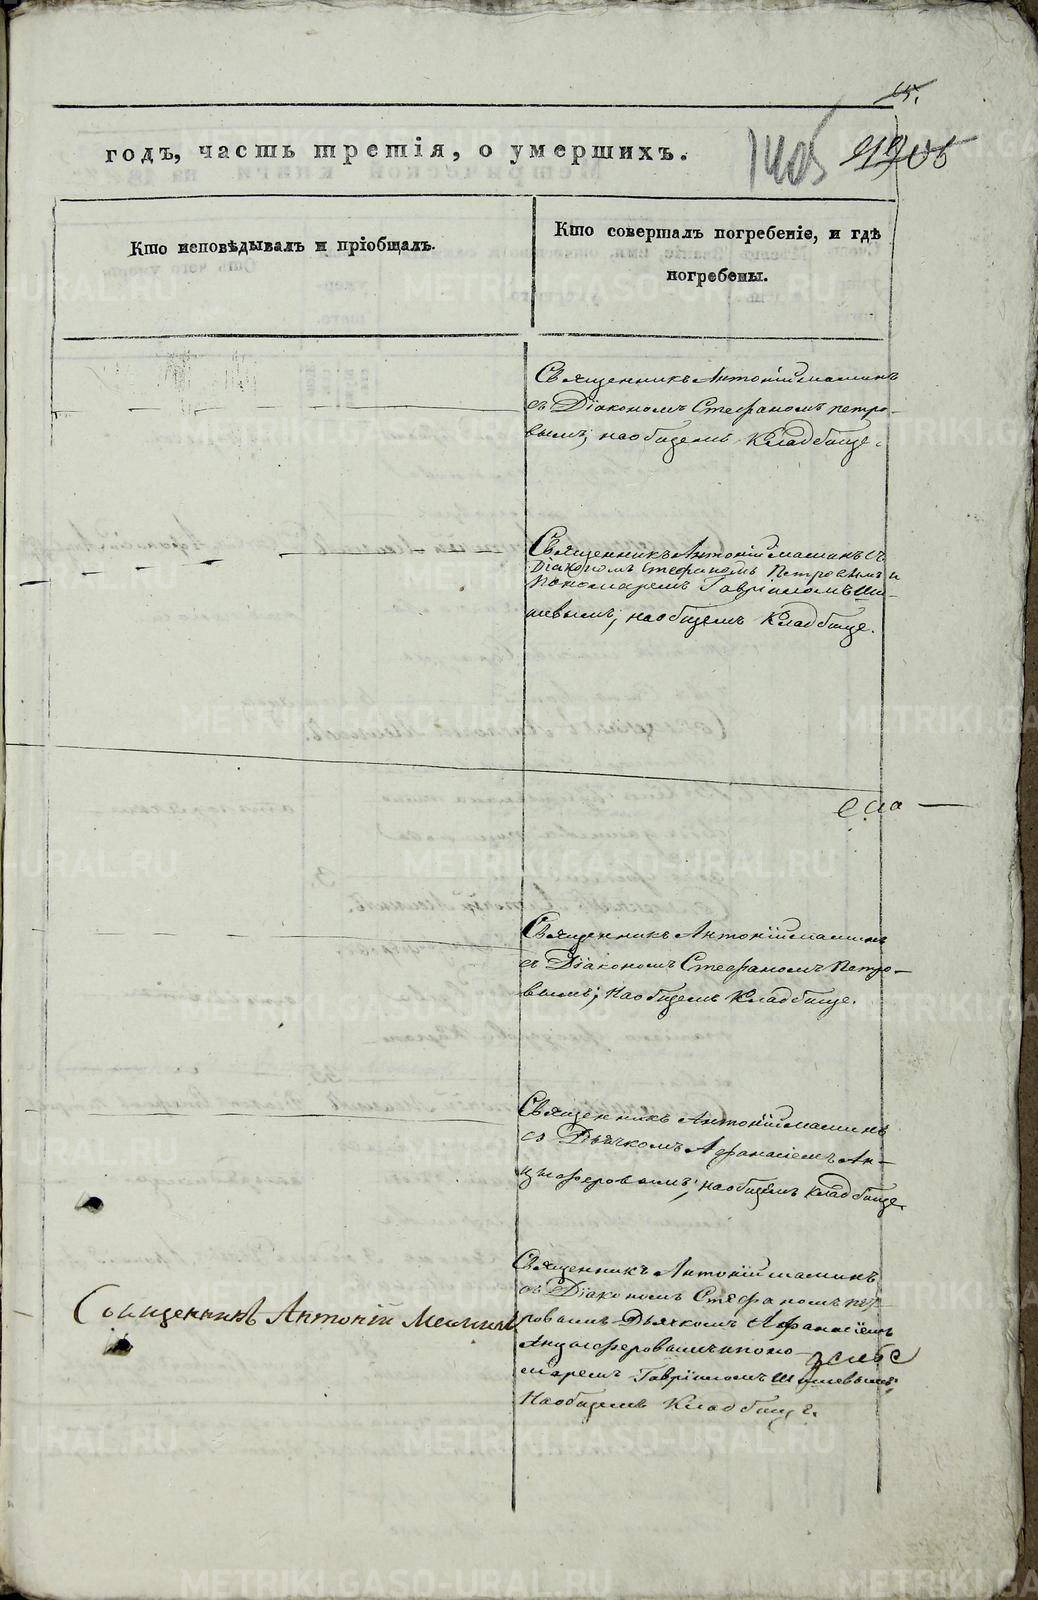 годъ, часть третія, о умершихъ.
1405
Кто исповѣдывалъ и пріобщалъ.
Кто совершалъ погребеніе, и гдѣ
погребены.
Священникъ Антоній
съ Діакономъ Стефаномъ Петро-
вымъ; на общемъ Кладбище.
Священникъ Антоній съ
Діакономъ Стефаномъ Петровымъ и
Пономаремъ Гавріиломъ Ши-
шевымъ; на общемъ Кладбище.
Священникъ Антоній
съ Діакономъ Стефаномъ Петро-
вымъ; на общемъ Кладбище.
Священникъ Антоній
съ Дьячкомъ Афанасіемъ Ан-
цыферовымъ; на общемъ кладбище.
Священникъ Антоній
съ Діакономъ Стефаномъ Пет-
ровымъ Дьячкомъ Афанасіемъ
Анцыферовымъ и поно-
маремъ Гавріиломъ Шишевымъ;
На общемъ Кладбище.
Священникъ Антоній
METRIKI.GASO-URAL.RU